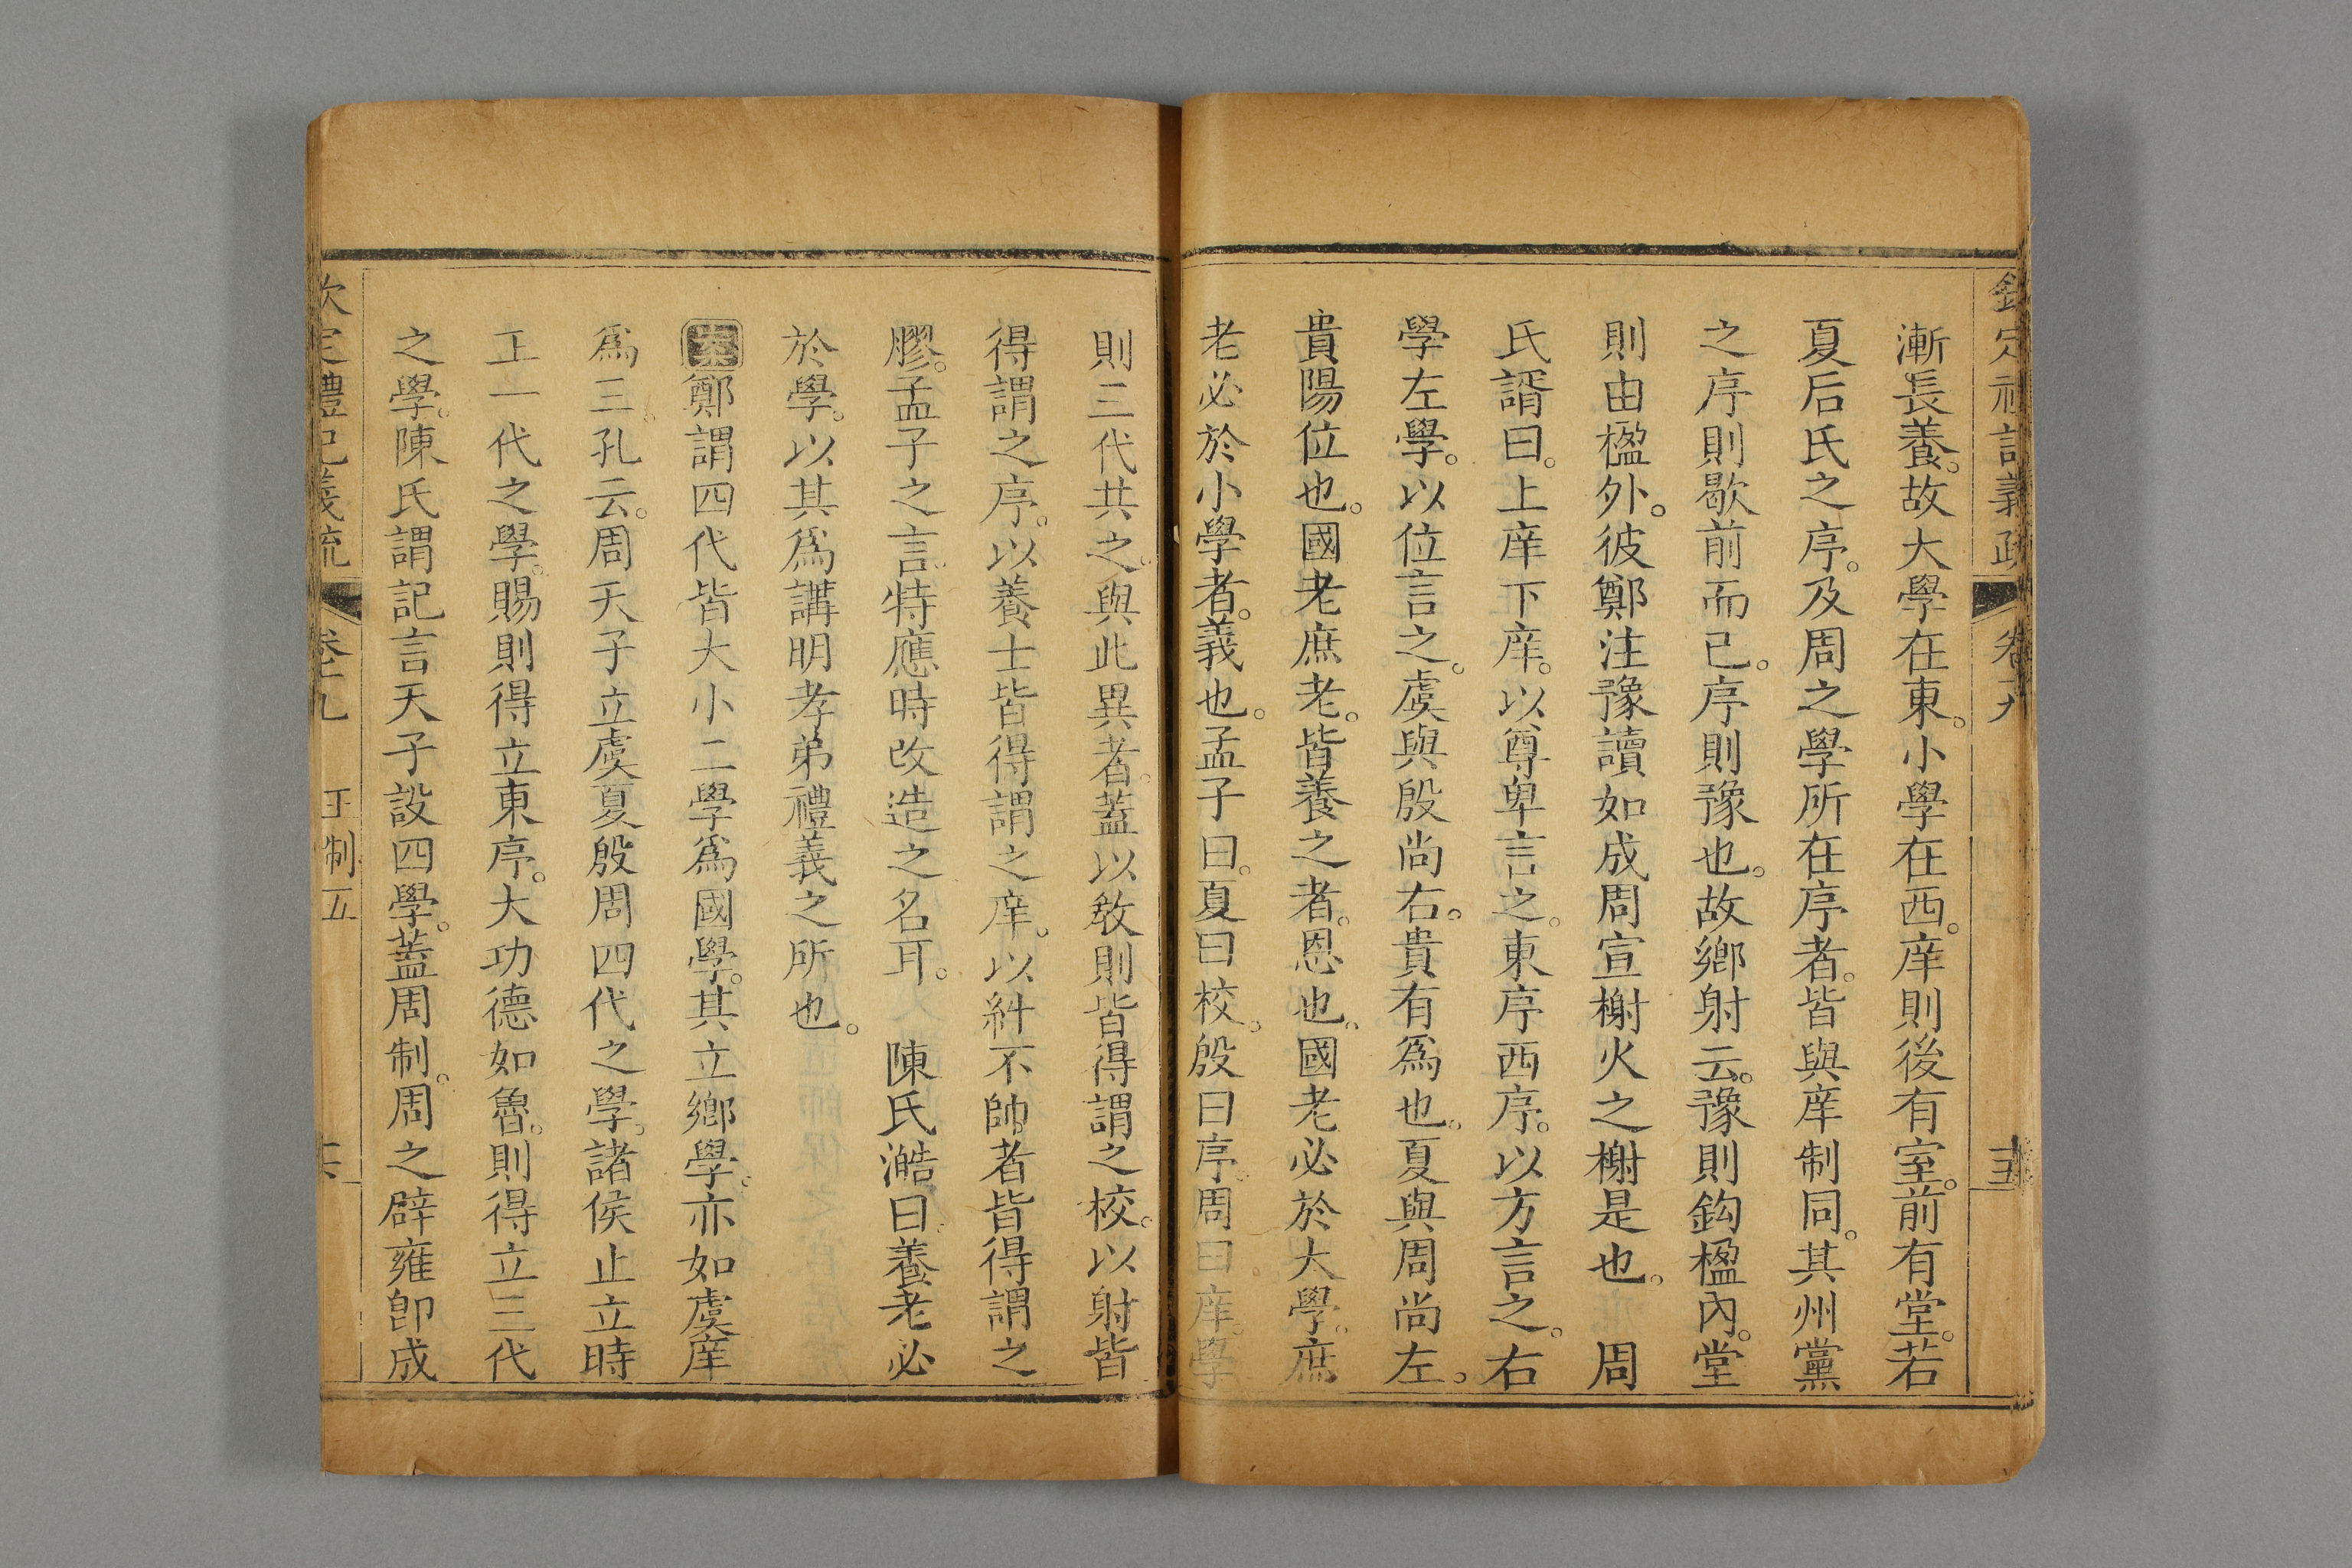 欽定禮記義疏 卷十九 十五
漸長養。故大學在東。小學在西。庠則後有室。前有堂。若
夏后氏之序。及周之學所在序者。皆與庠制同。其州黨
之序則歇前而已。序則豫也。故鄉射云。豫則鈎楹內。堂
則由楹外。彼鄭注豫讀如成周宣榭火之榭是也。 周
氏諝曰。上庠下庠。以尊卑言之。東序西序。以方言之。右
學左學。以位言之。虞與殷尚右。貴有爲也。夏與周尚左。
貴陽位也。國老庶老。皆養之者。恩也。國老必於大學。庶
老必於小學者。義也。孟子曰。夏曰校。殷曰序。周曰庠。學
則三代共之。與此異者。蓋以敎則皆得謂之校。以射皆
得謂之序。以養士皆得謂之庠。以糾不帥者皆得謂之
膠。孟子之言。特應時改造之名耳。 陳氏澔曰。養老必
於學。以其爲講明孝弟禮義之所也。
案鄭謂四代皆大小二學爲國學。其立鄉學。亦如虞庠
爲三。孔云。周天子立虞夏殷周四代之學。諸侯止立時
王一代之學。賜則得立東序。大功德如魯。則得立三代
之學。陳氏謂記言天子設四學。蓋周制。周之辟雍卽成
欽定禮記義疏 卷十九 王制五 十六